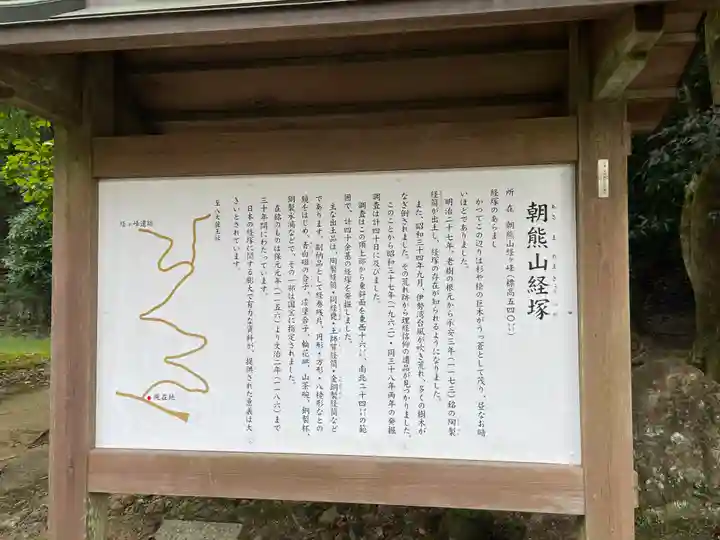 朝熊山経塚
所在 朝熊山経ヶ峰(標高五四〇㍍)
経塚のあらまし
かつてこの辺りは杉や桧の巨木がうっ蒼として茂り、昼なお暗
いほどでありました。
明治二十七年、老樹の根元から承安三年(一一七三)銘の陶製
経筒が出土し、経塚の存在が知られるようになりました。
また、昭和三十四年九月、伊勢湾台風が吹き荒れ、多くの樹木が
なぎ倒されました。その荒れ跡から埋経信仰の遺品が見つかりました。
このことから昭和三十七年(一九六二)・同三十八年両年の発掘
調査は計四十日に及びました。
調査はこの頂上部から東斜面を東西十六㍍、南北二十四㍍の範
囲で、計四十余基の経塚を発掘しました。
主な出土品は、陶製経筒・同経甕・土師質経筒・金銅製経筒など
であります。副納品として経巻残片、円形・方形・八稜形などの
鏡をはじめ、青白磁の合子、漆塗合子、輪花皿、山茶碗、銅製杯、
銅製水滴などで、その一部は国宝に指定されました。
在銘のものは保元元年(一一五六)より文治二年(一一八六)まで
三十年間にわたっています。
日本の経塚に関する膨大で有力な資料が、提供された意義は大
きいとされています。
至八大龍王社
経ヶ峰遺跡
現在地